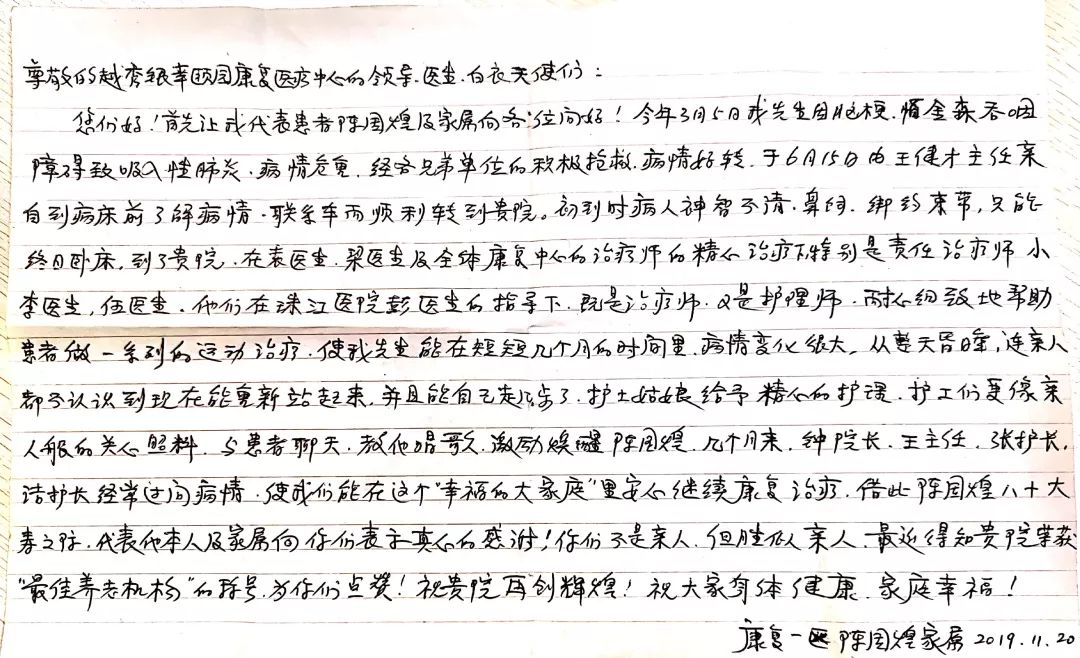 尊敬的越秀银幸颐园康复医疗中心的领导、医生、白衣天使们：
您们好！首先让我代表患者陈国煌及家属向各位问好！今年3月5日我先生因脑梗、帕金森吞咽
障碍致吸入性肺炎、病情危重，经各兄弟单位的积极抢救，病情好转，于6月15日由王健才主任亲
自到病床前了解病情，联系车而顺利转到贵院。初到时病人神智不清、鼻饲、绑约束带，只能
终日卧床，到了贵院，在袁医生、梁医生及全体康复中心的治疗师的精心治疗下特别是责任治疗师小
李医生，伍医生，他们在珠江医院彭医生的指导下，既是治疗师，又是护理师，耐心细致地帮助
患者做一系列的运动治疗，使我先生能在短短几个月的时间里，病情变化很大，从整天昏睡，连亲人
都不认识到现在能重新站起来，并且能自己走几步了，护士姑娘给予精心的护理，护工们更像亲
人般的关心照料，与患者聊天，教他唱歌，激励焕醒陈国煌，几个月来，钟院长、王主任、张护长、
洁护长经常过问病情，使我们能在这个"幸福的大家庭"里安心继续康复治疗，借此陈国煌八十大
寿之际，代表他本人及家属向你们表示真心的感谢！你们不是亲人，但胜似亲人，最近得知贵院荣获
"最佳养老机构"的称号，为你们点赞！祝贵院再创辉煌！祝大家身体健康、家庭幸福！
康复一区 陈国煌家属 2019.11.20